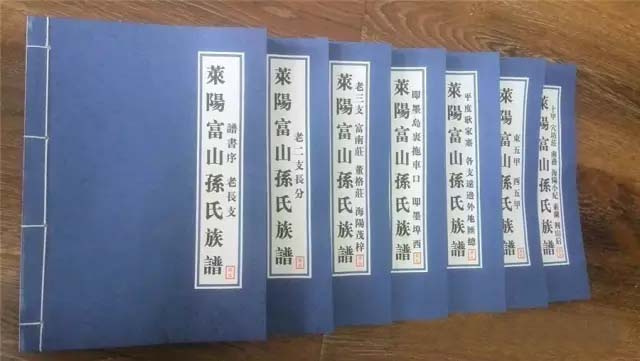 萊陽富山孫氏族譜
譜書序 老長支
萊陽富山孫氏族譜
老二支長分
萊陽富山孫氏族譜
老三支 富南莊 董格莊 海陽茂梓
萊陽富山孫氏族譜
即墨島裏拖車口 即墨埠西
萊陽富山孫氏族譜
平度耿家寨 各支遠遷外地匯總
萊陽富山孫氏族譜
東五甲 西五甲
萊陽富山孫氏族譜
十甲